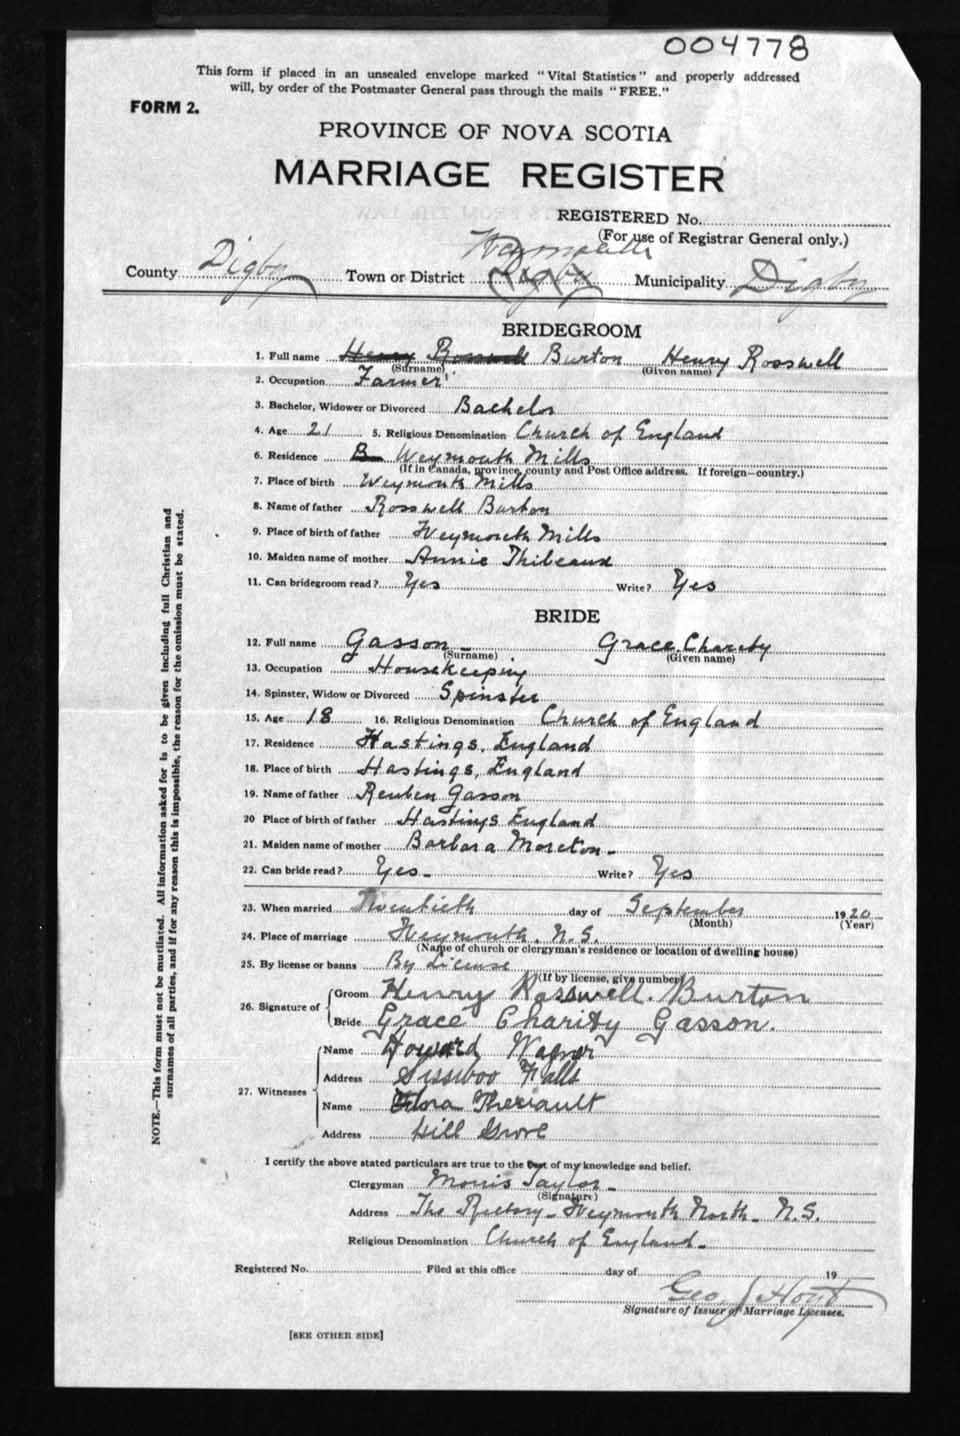 004778
This form if placed in an unsealed envelope marked "Vital Statistics" and properly addressed
will, by order of the Postmaster General pass through the mails "FREE."
FORM 2.
PROVINCE OF NOVA SCOTIA
MARRIAGE REGISTER
REGISTERED No.
(For use of Registrar General only.)
Weymouth
County Digby Town or District Digby Municipality Digby
BRIDEGROOM
1. Full name Henry Rosswell Burton Henry Rosswell
(Surname) (Given name)
2. Occupation Farmer
3. Bachelor, Widower or Divorced Bachelor
4. Age 21 5. Religious Denomination Church of England
6. Residence B Weymouth Mills
(If in Canada, province, county and Post Office address. If foreign—country.)
7. Place of birth Weymouth Mills
8. Name of father Rosswell Burton
9. Place of birth of father Weymouth Mills
10. Maiden name of mother Annie Thibeaux
11. Can bridegroom read? Yes Write? Yes
BRIDE
12. Full name Gasson Grace Charity
(Surname) (Given name)
13. Occupation Housekeeping
14. Spinster, Widow or Divorced Spinster
15. Age 18 16. Religious Denomination Church of England
17. Residence Hastings, England
18. Place of birth Hastings, England
19. Name of father Reuben Gasson
20 Place of birth of father Hastings England
21. Maiden name of mother Barbara Moreton
22. Can bride read? Yes Write? Yes
23. When married Twentieth day of September 1920
(Month) (Year)
24. Place of marriage Weymouth, N.S.
(Name of church or clergyman's residence or location of dwelling house)
25. By license or banns By License
(If by license, give number)
26. Signature of Groom Henry Rosswell Burton
Bride Grace Charity Gasson.
27. Witnesses Name Howard Wagner
Address Sissiboo Falls
Name Theriault
Address Hill Grove
I certify the above stated particulars are true to the best of my knowledge and belief.
Clergyman Morris Taylor
(Signature)
Address The Rectory - Weymouth North - N.S.
Religious Denomination Church of England
Registered No. Filed at this office day of 19
Geo J Hoyt
Signature of Issuer of Marriage Licenses.
[SEE OTHER SIDE]
NOTE.—This form must not be mutilated. All information asked for is to be given including full Christian and
surnames of all parties, and if for any reason this is impossible, the reason for the omission must be stated.